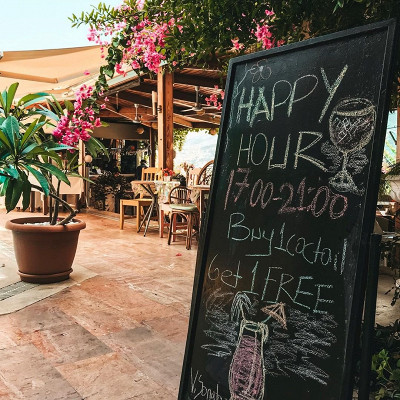 HAPPY
HOUR
17:00-21:00
Buy 1 coctail
Get 1 FREE